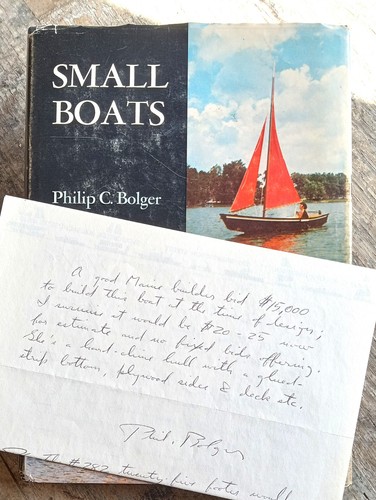 SMALL
BOATS
Philip C. Bolger
A good Maine builder bid $15,000
to build this boat at the time of design;
I surmise it would be $20-25 now
for estimate and no fixed bids offering.
She's a hard-chine hull with a glued-
strip bottom, plywood sides & deck etc.
Phil. Bolger
the #282 twenty-five footer would